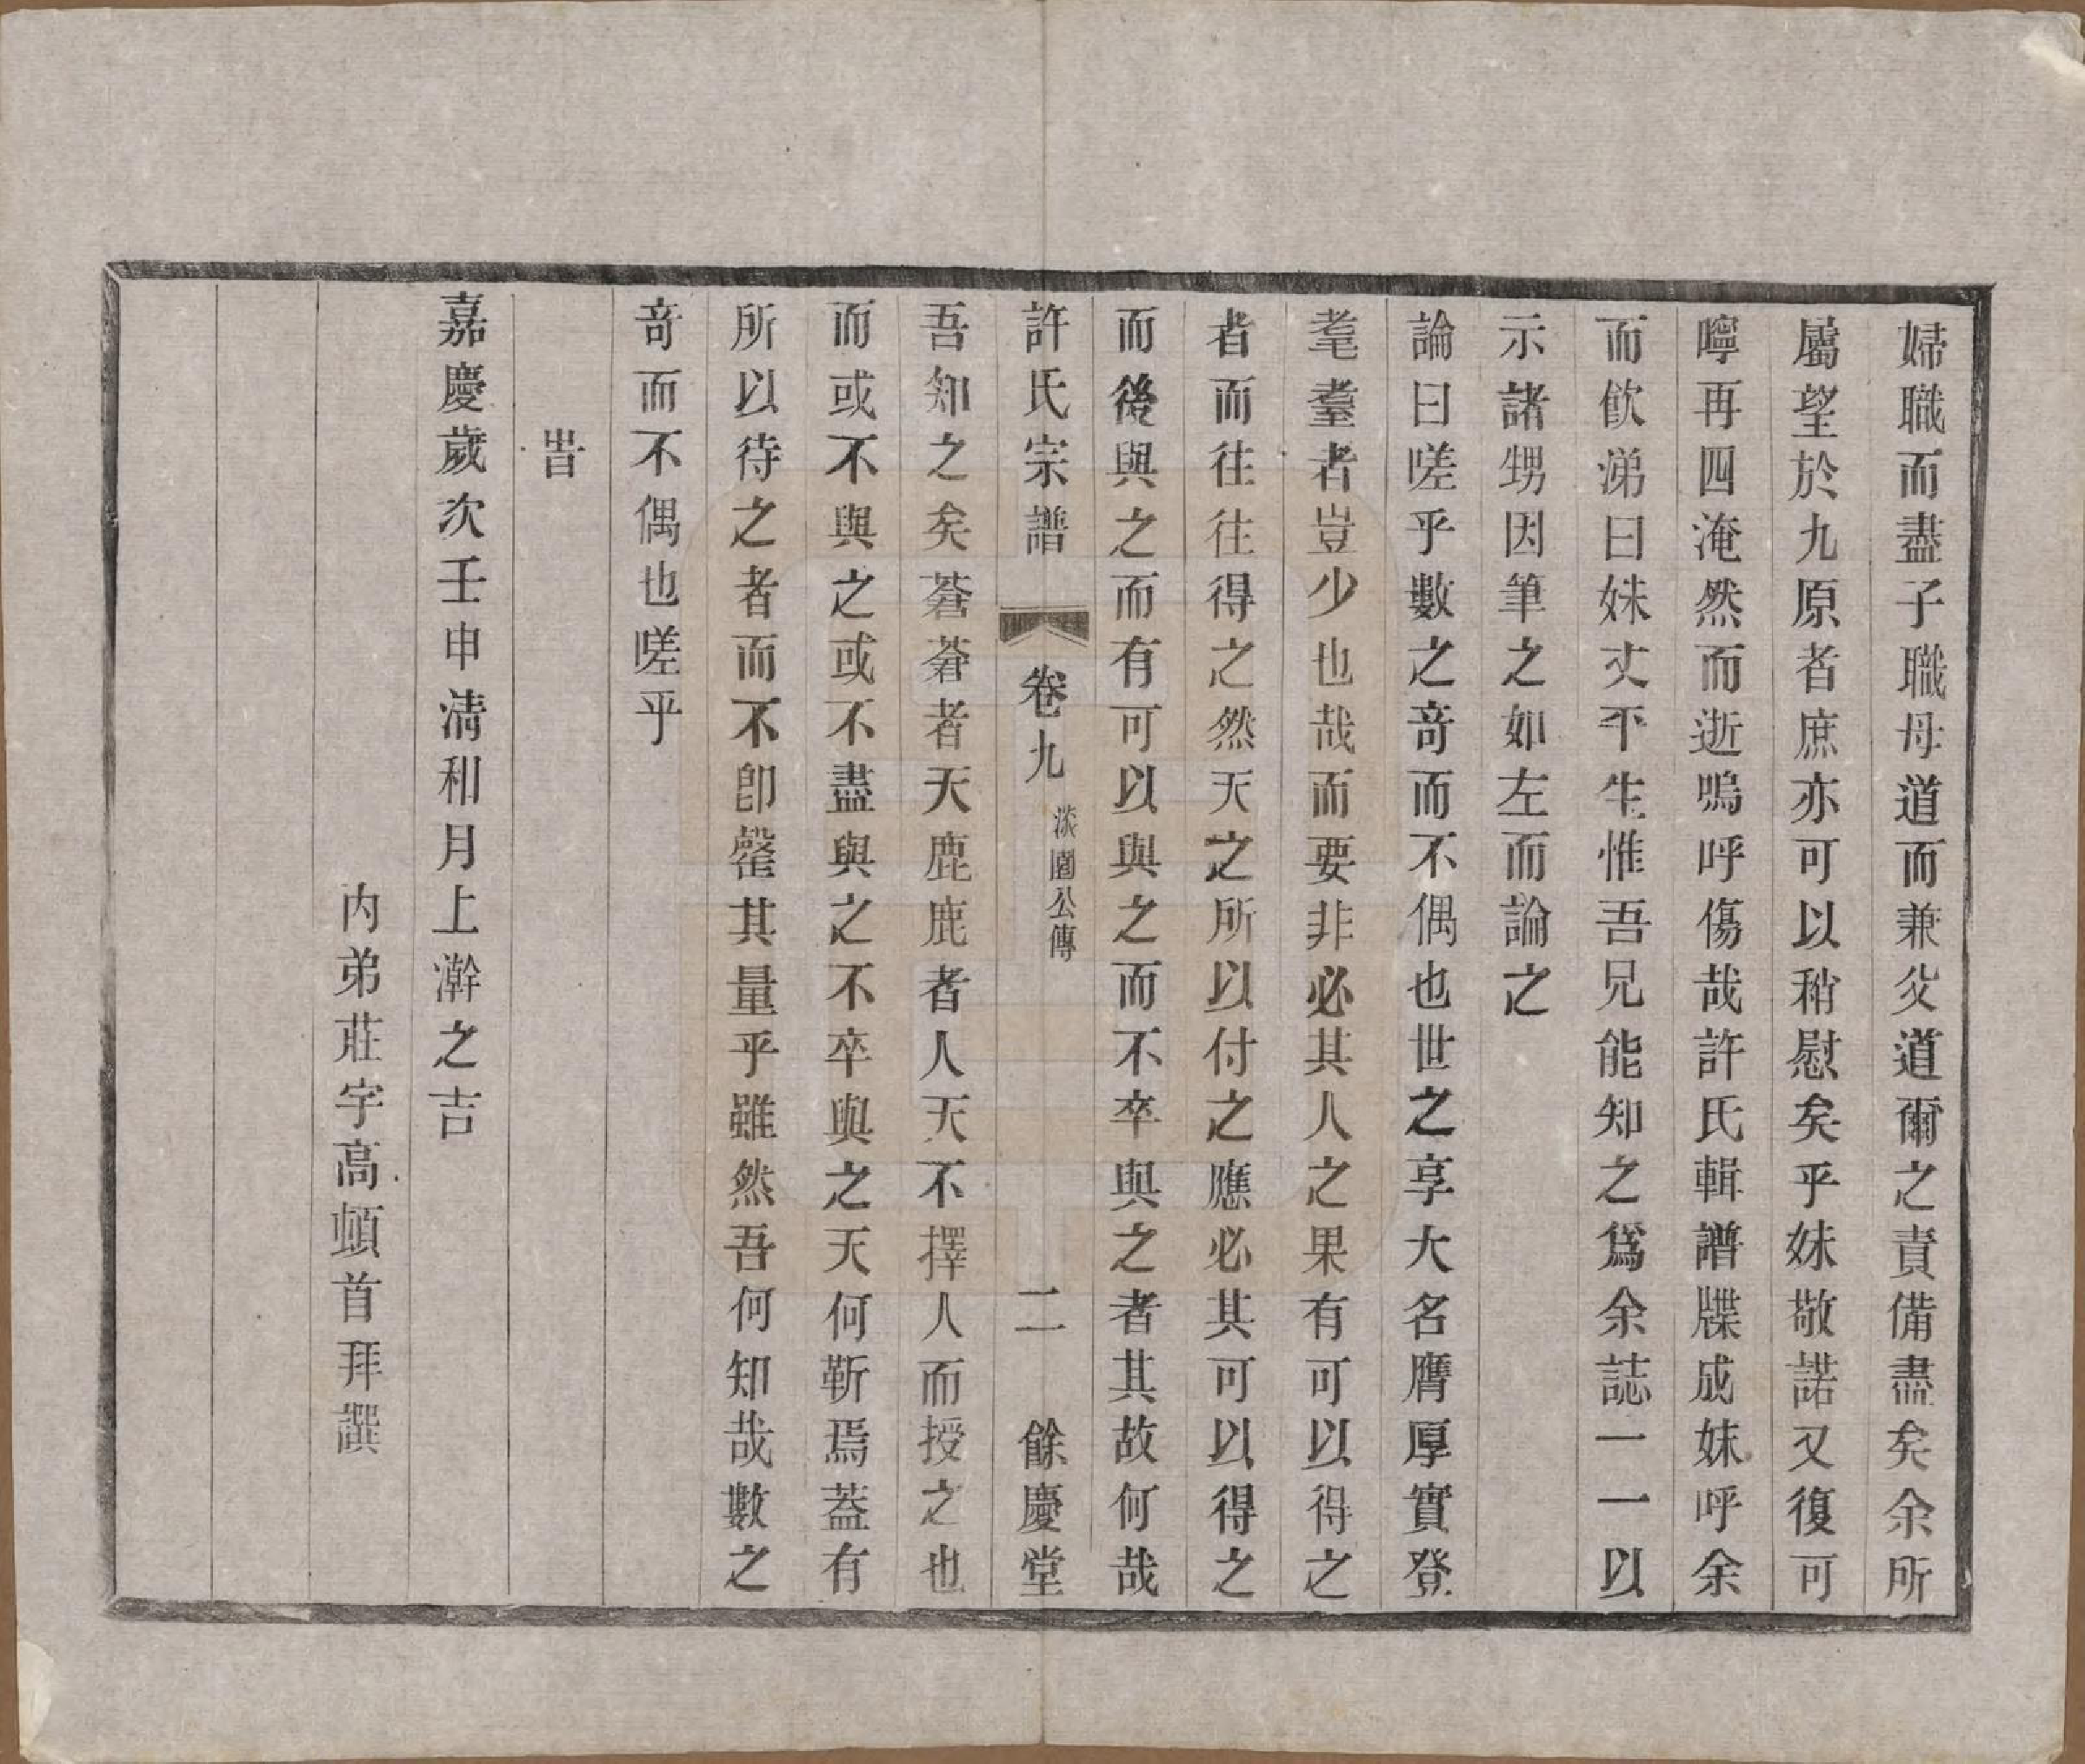 婦職而盡子職母道而兼父道爾之責備盡矣余所
屬望於九原者庶亦可以稍慰矣乎妹敬諾又復可
嚀再四淹然而逝嗚呼傷哉許氏輯譜牒成妹呼余
而飲涕曰妹丈平生惟吾兄能知之爲余誌一一以
示諸甥因筆之如左而論之
論曰嗟乎數之奇而不偶也世之享大名膺厚實登
耄耋者豈少也哉而要非必其人之果有可以得之
者而往往得之然天之所以付之應必其可以得之
而後與之而有可以與之而不卒與之者其故何哉
許氏宗譜 卷九 淡園公傳 二 餘慶堂
吾知之矣蒼蒼者天鹿鹿者人天不擇人而授之也
而或不與之或不盡與之不卒與之天何靳焉蓋有
所以待之者而不卽罄其量乎雖然吾何知哉數之
奇而不偶也嗟乎
旹
嘉慶歲次壬申淸和月上澣之吉
內弟莊宇高頓首拜譔